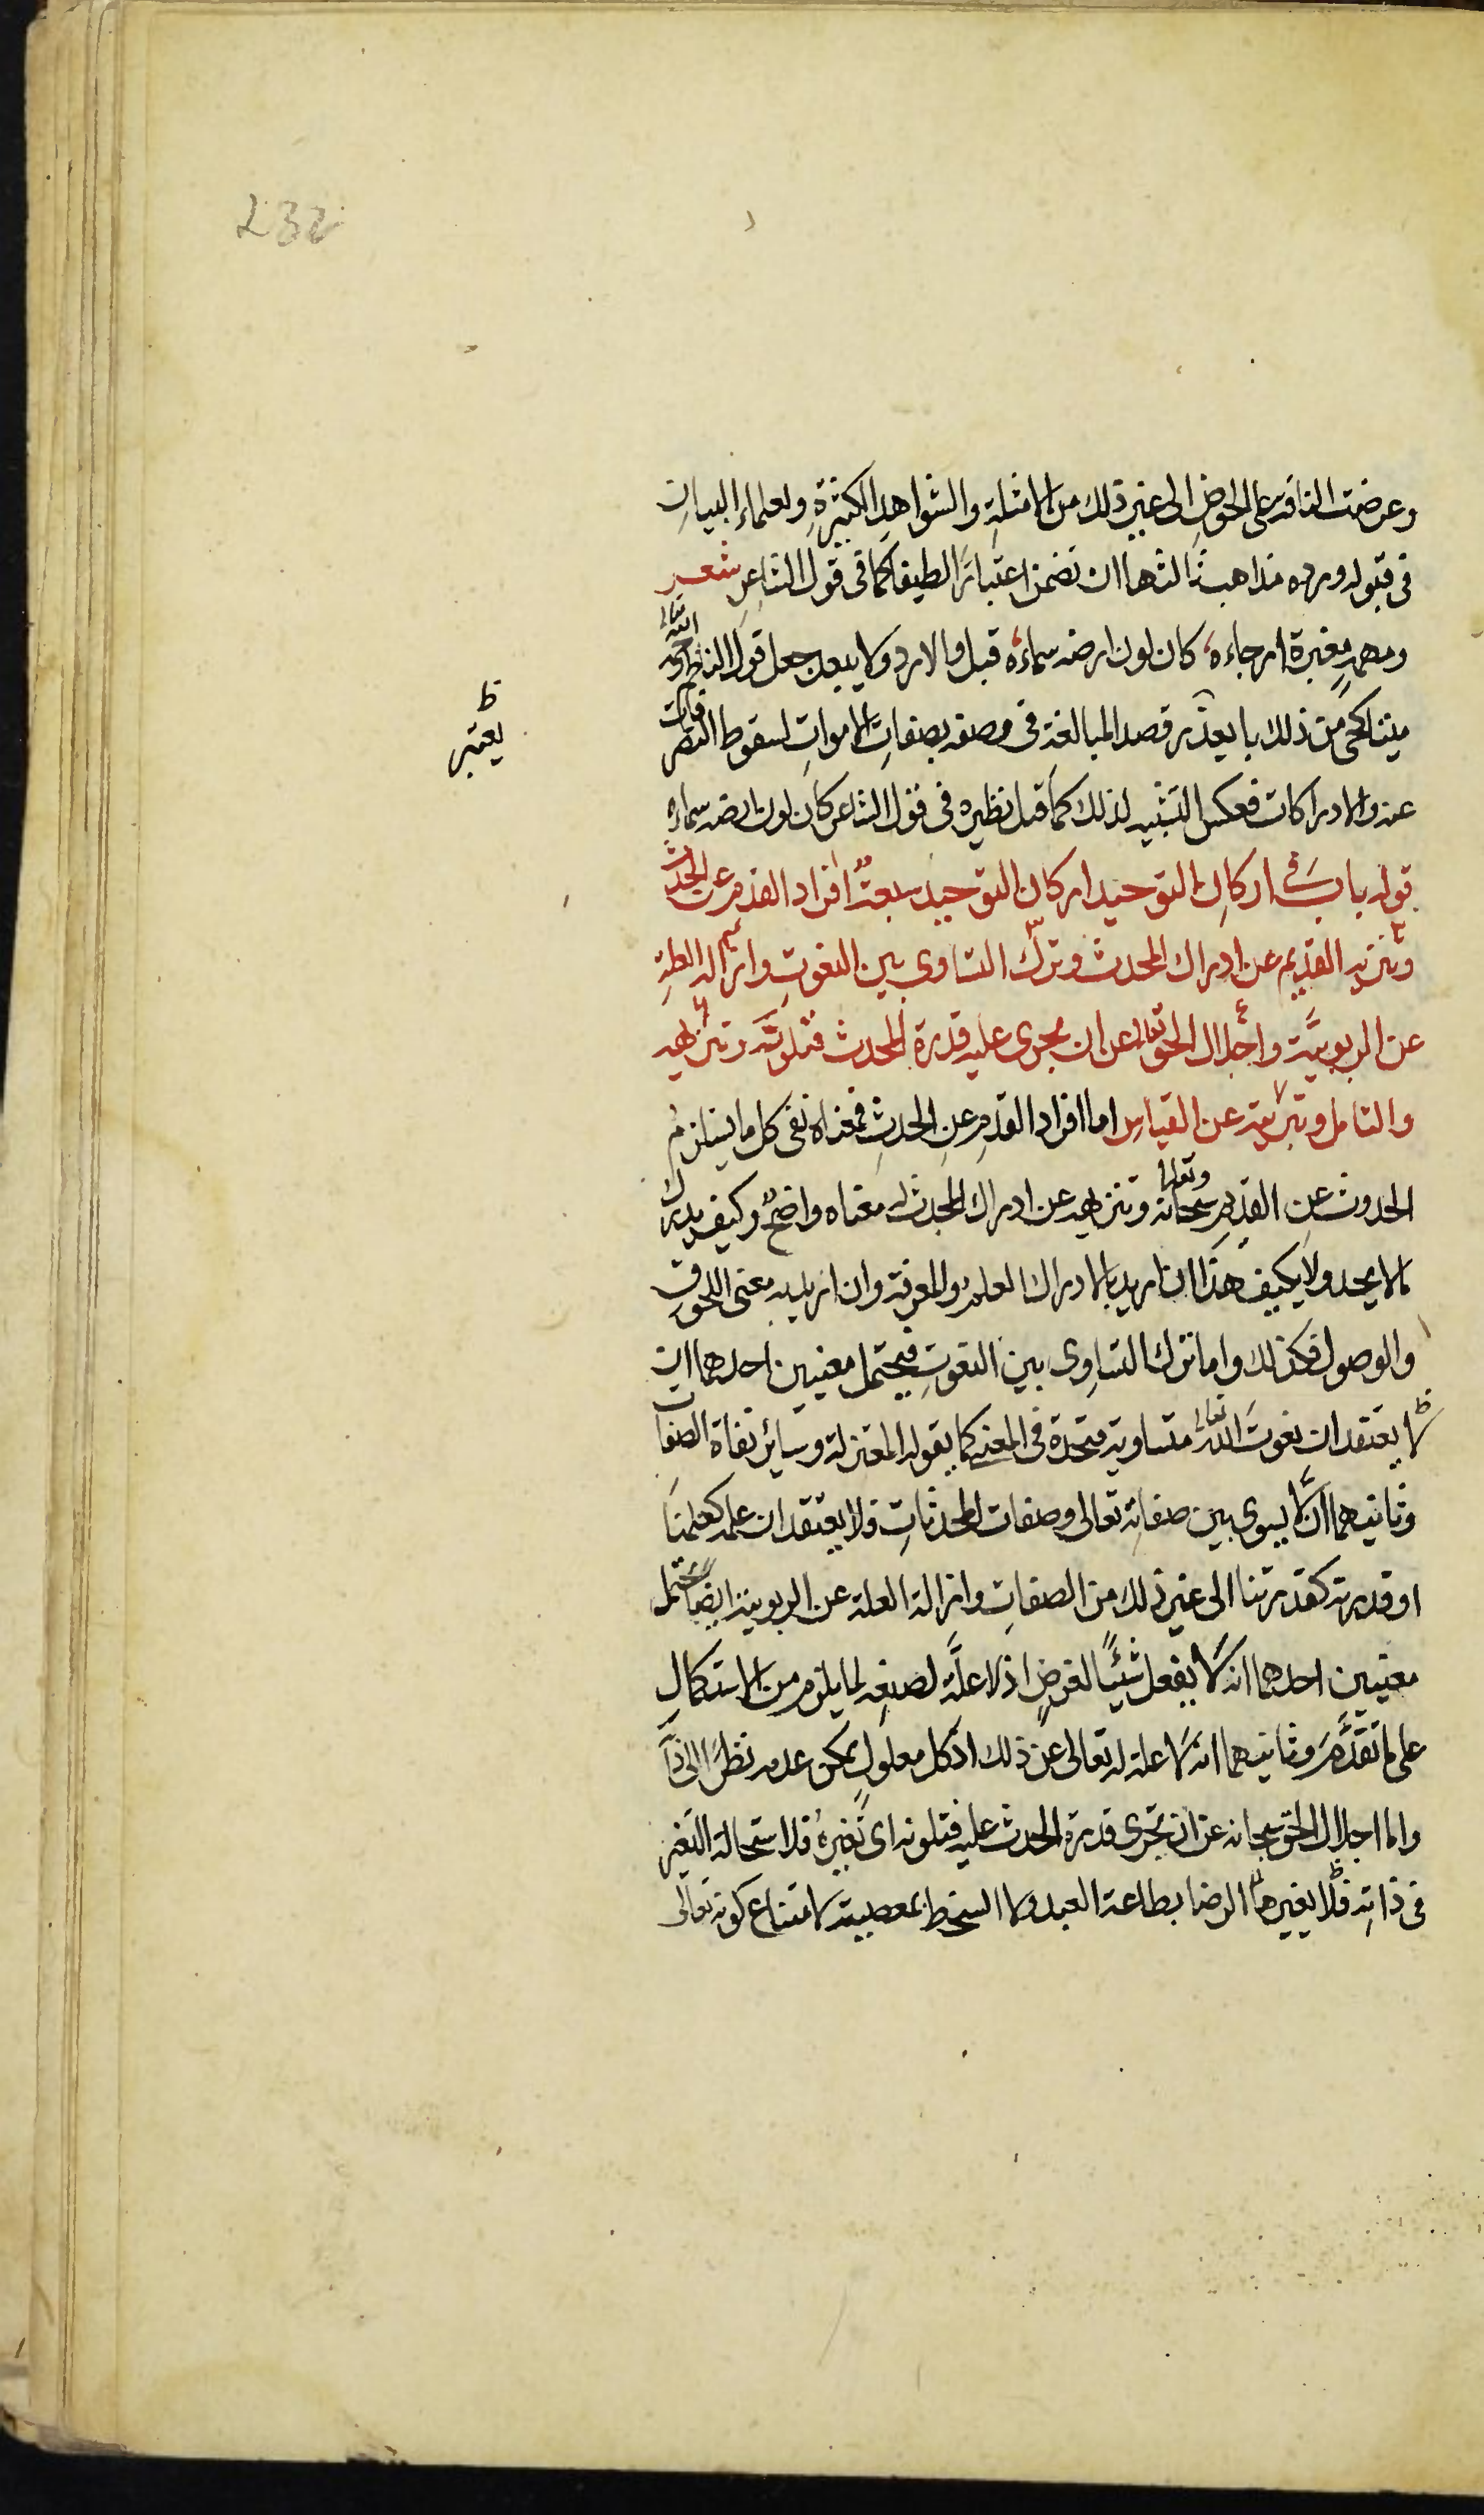 232
وعرضت الناقة على الحوض الى غير ذلك من الامثلة والشواهد الكثيرة ولعلماء البيان
فى قبوله ورده مذاهب ثالثها ان تضمن اعتبارًا لطيفا كما فى قول الشاعر شعر
ومهمهٍ مغبرة ارجاءه كان لون ارضه سماءه قبل والا رد ولا يبعد جعل قول الناظم
ميتا كحى من ذلك بقصد المبالغة فى وصفه بصفات الاموات لسقوط التصرفات
يعتبر
ظ
عنه والادراكات فعكس التشبيه لذلك كما قيل نظيره فى قول الشاعر كان لون ارضه سماءه
قوله باب فى اركان التوحيد اركان التوحيد سبعة افراد القدم عن الحدث
وتنزيه القديم عن ادراك المحدث وترك التساوى بين النعوت وازالة العلة
عن الربوبية واجلال الحق تعالى عن ان يجرى عليه قدرة المحدث فتلونه وتنزيهه
والتامل وتبرئته عن القياس اما افراد القدم عن الحدث فمعناه نفى كل ما يستلزم
الحدوث عن القديم سبحانه وتعالى وتنزيهه عن ادراك المحدث له معناه واضح وكيف يدرك
مالا يحد ولا يكيف هذا ان اريد بالادراك العلم والمعرفة وان اريد به معنى اللحوق
والوصول فكذلك واما ترك التساوى بين النعوت فيحتمل معنيين احدهما ان
لا يعتقد ان نعوت الله تعالى متساوية متحدة فى المعنى كما يقوله المعتزلة وسائر نفاة الصفات
وثانيهما ان لا يسوى بين صفاته تعالى وصفات المحدثات فلا يعتقد ان علمه كعلمنا
او قدرته كقدرتنا الى غير ذلك من الصفات وازالة العلة عن الربوبية ايضا يحتمل
معنيين احدهما انه لا يفعل شيئًا لغرض اذ لا علة لصنعه لما يلزم من الاستكمال
على ما تقدم وثانيهما انه لا علة له تعالى عن ذلك اذ كل معلول يمكن عدمه نظرًا الى ذاته
واما اجلال الحق سبحانه عن ان تجرى قدرة الحدث عليه فتلونه اى تغيره فلاستحالة التغير
فى ذاته فلا يغيرها الرضا بطاعة العبد ولا السخط بمعصيته لامتناع كونه تعالى